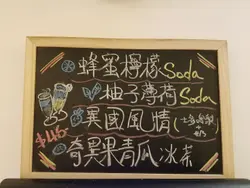 蜂蜜檸檬Soda
柚子薄荷Soda
異國風情(
奇異果青瓜冰茶
$46